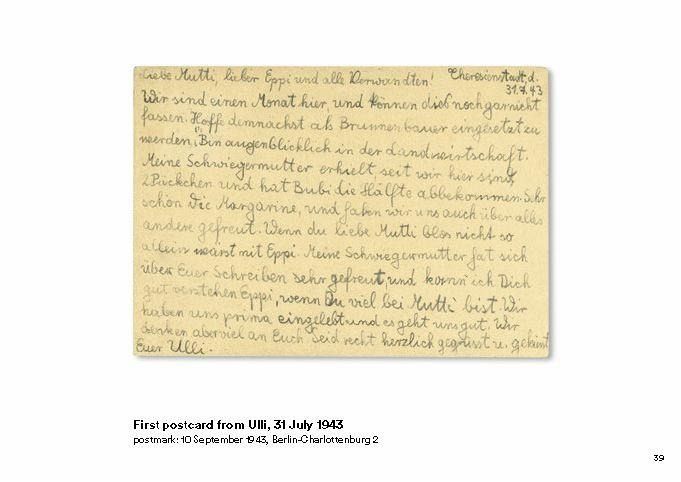 Liebe Mutti, lieber Eppi und alle Verwandten! Theresienstadt, d.
31.7.43
Wir sind einen Monat hier, und können dies noch garnicht
fassen. Hoffe demnächst als Brunnenbauer eingesetzt zu
werden, Bin augenblicklich in der Landwirtschaft.
Meine Schwiegermutter erhielt, seit wir hier sind,
2 Päckchen und hat Bubi die Hälfte abbekommen. Sehr
schön die Margarine, und haben wir uns auch über alles
andere gefreut. Wenn du liebe Mutti bloss nicht so
allein wärst mit Eppi. Meine Schwiegermutter hat sich
über Euer Schreiben sehr gefreut, und kann ich Dich
gut verstehen Eppi, wenn Du viel bei Mutti bist. Wir
haben uns prima eingelebt und es geht uns gut. Wir
denken aber viel an Euch. Seid recht herzlich gegrüsst u. geküsst
Euer Ulli.
First postcard from Ulli, 31 July 1943
postmark: 10 September 1943, Berlin-Charlottenburg 2
39